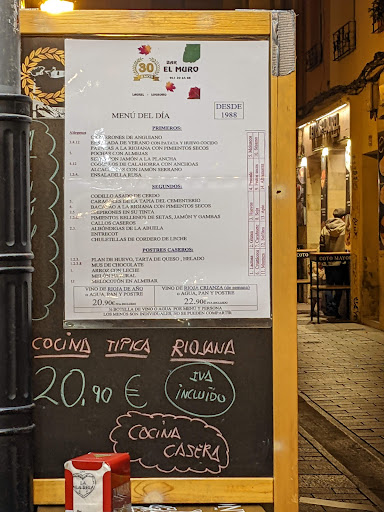 30
BAR
EL MURO
MENÚ DEL DÍA
DESDE
1988
PRIMEROS:
CAPARRONES DE ANGUIANO
ENSALADA DE VERANO CON PATATA Y HUEVO COCIDO
PATATAS A LA RIOJANA CON PIMIENTOS SECOS
POCHAS CON ALMEJAS
SETAS CON JAMÓN A LA PLANCHA
COGOLLOS DE TUDELA CON ANCHOAS
ALCACHOFAS CON JAMÓN SERRANO
ENSALADILLA RUSA
SEGUNDOS:
CODILLO ASADO DE CERDO
CARACOLES DE LA TAPIA DEL CEMENTERIO
BACALAO A LA RIOJANA CON PIMIENTOS SECOS
CHIPIRONES EN SU TINTA
PIMIENTOS RELLENOS DE SETAS, JAMÓN Y GAMBAS
CALLOS CASEROS
ALBÓNDIGAS DE LA ABUELA
ENTRECOT
CHULETILLAS DE CORDERO DE LECHE
POSTRES CASEROS:
FLAN DE HUEVO, TARTA DE QUESO, HELADO
MUS DE CHOCOLATE
ARROZ CON LECHE
MELOCOTÓN EN ALMIBAR
VINO DE RIOJA DE AÑO
o AGUA, PAN Y POSTRE
20.90€
VINO DE RIOJA CRIANZA
o AGUA, PAN Y POSTRE
22.90€
½ BOTELLA DE VINO O AGUA, POR MENÚ Y PERSONA
LOS MENÚS SON INDIVIDUALES, NO SE PUEDEN COMPARTIR
COCINA TIPICA RIOJANA
20,90 €
IVA
INCLUÍDO
COCINA
CASERA
COTO MAYOR